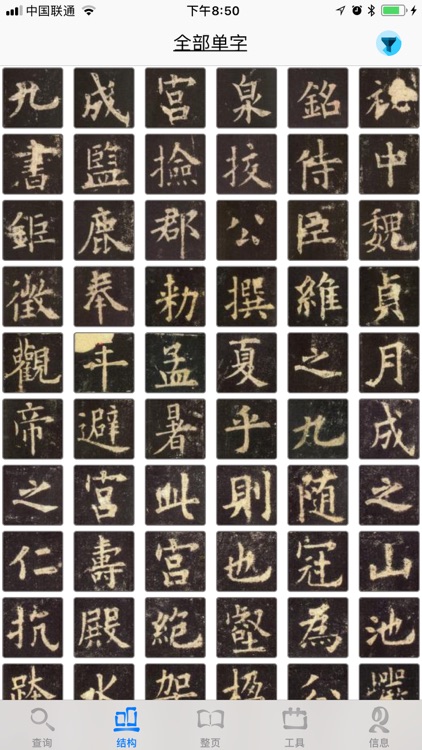 中国联通 下午8:50
全部单字
九 成 宮 泉 銘 秘
書 監 撿 挍 侍 中
鉅 鹿 郡 公 臣 魏
徵 奉 勅 撰 維 貞
觀 年 孟 夏 之 月
帝 避 暑 乎 九 成
之 宮 此 則 随 之
仁 壽 宮 也 冠 山
抗 殿 絕 壑 為 池
跨 水 架 楹 分 巖
查询 结构 整页 工具 信息